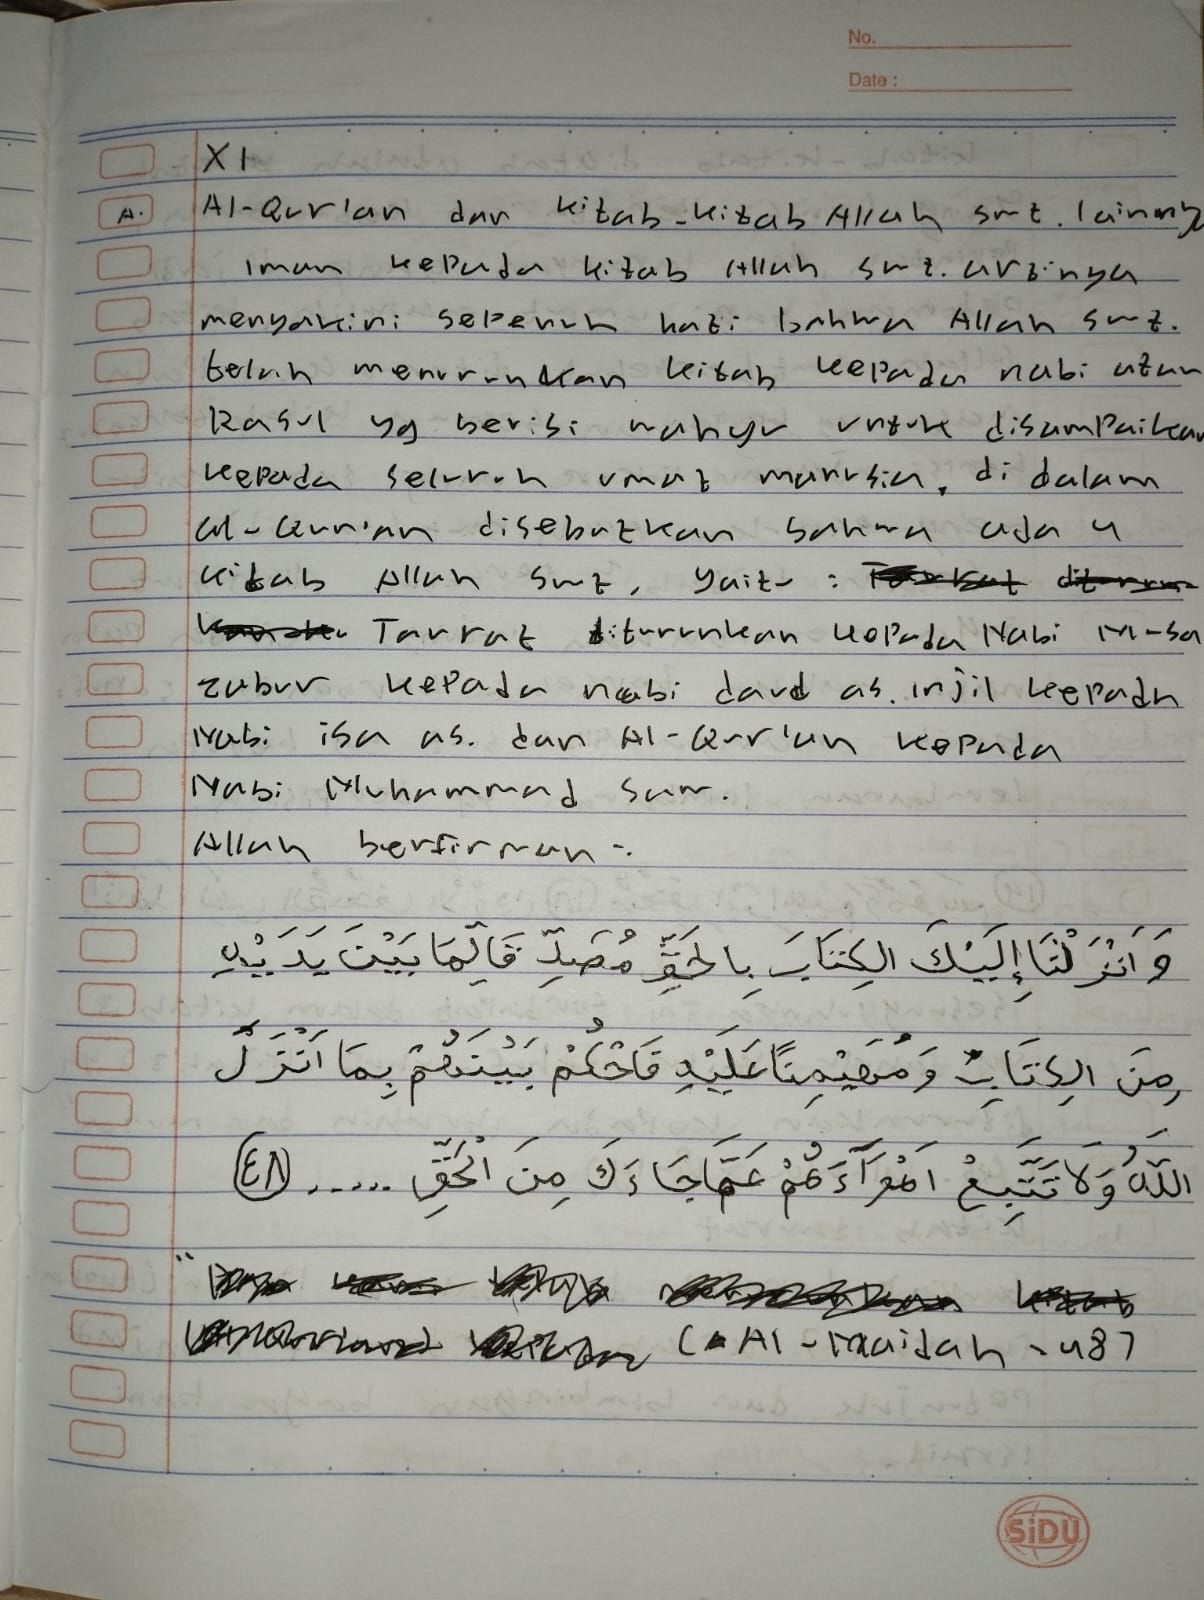 No.
Date :
XI
A. Al-Qur'an dan kitab-kitab Allah swt. lainnya
iman kepada kitab Allah swt. artinya
menyakini sepenuh hati bahwa Allah swt.
telah menurunkan kitab kepada nabi atau
Rasul yg berisi wahyu untuk disampaikan
kepada seluruh umat manusia, di dalam
al-Qur'an disebutkan bahwa ada 4
kitab Allah swt, yaitu :
Taurat diturunkan kepada Nabi Musa
zabur kepada nabi daud as. injil kepada
Nabi isa as. dan Al-Qur'an kepada
Nabi Muhammad saw.
Allah berfirman :
وَ اَنْزَلْنَا إِلَيْكَ الْكِتَابَ بِا لْحَقِّ مُصَدِّ قَالِّمَا بَيْنَ يَدَيْهِ
مِنَ الْكِتَابِ وَمُهَيْمِنًا عَلَيْهِ فَاحْكُمْ بَيْنَهُمْ بِمَا اَنْزَلَ
اللّٰهُ وَلَا تَتَّبِعْ اَهْوَآءَهُمْ عَمَّا جَاءَكَ مِنَ الْحَقِّ ...... (٤٨)
(Al-Maidah : 48)
SiDU